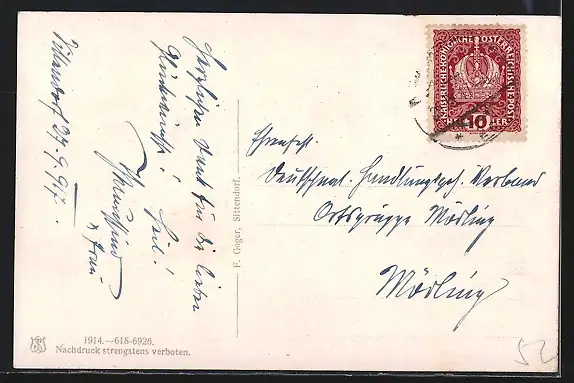 Sittendorf 27.9.917.
Herzlichen Dank für die lieben
Heil!
& Frau
F. Göger, Sittendorf.
1914.—618-6926.
Nachdruck strengstens verboten.
KAISERLICHE KÖNIGLICHE ÖSTERREICHISCHE POST
HELLER
10
Deutschnat. Handlungsgeh. Verband
Ortsgruppe Mödling
Mödling
52